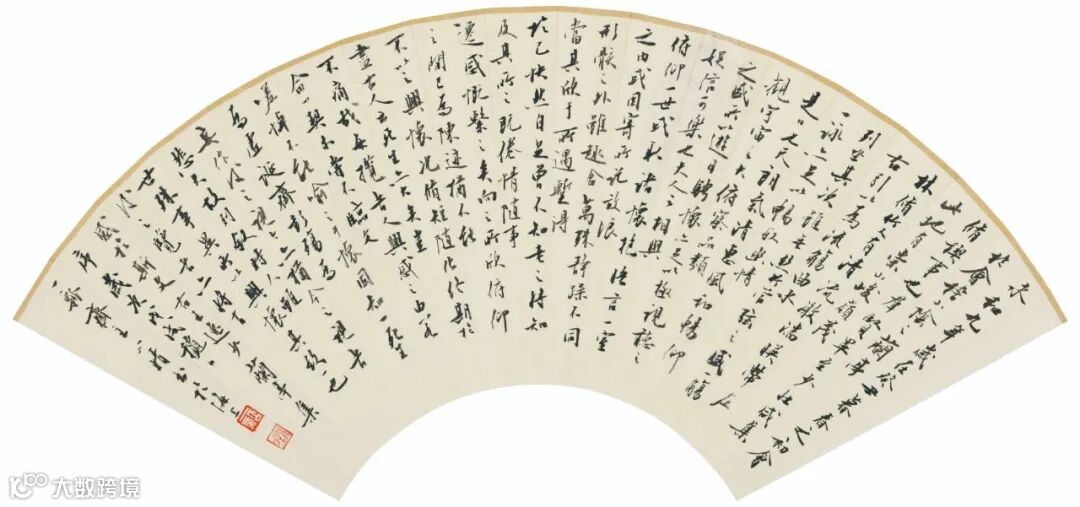 永和九年歲在癸丑暮春之初會
於會稽山陰之蘭亭
脩禊事也群賢畢至少長咸集
此地有崇山峻嶺茂
林脩竹又有清流激湍暎帶左
右引以為流觴曲水
列坐其次雖無絲竹管弦之盛一觴
一詠亦足以暢敘幽情
是日也天朗氣清惠風和暢仰
觀宇宙之大俯察品類
之盛所以遊目騁懷足以極視聽之
娛信可樂也夫人之相與
俯仰一世或取諸懷抱悟言一室
之內或因寄所託放浪
形骸之外雖趣舍萬殊靜躁不同
當其欣于所遇暫得
於己快然自足曾不知老之將知
及其所之既倦情隨事
遷感慨繫之矣向之所欣俯仰
之閒已為陳迹猶不能
不以之興懷況脩短隨化終期於
盡古人云死生亦大矣豈
不痛哉每攬昔人興感之由若
合一契未嘗不臨文
嗟悼不能喻之於懷固知一死生
為虛誕齊彭殤為
妄作後之視今亦猶今之視昔
悲夫故列敘時人
世殊事異所以興懷其致一也
後之覽者亦將有
感於斯文蘭亭集
序
書於海上
大数跨境